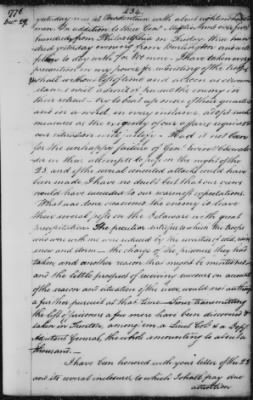 1776
Dec. 29.
232
yesterday was at Bordentown with about eighteen hundred
men. In addition to these Genl. Mifflin sent over five
hundred from Philadelphia on Friday, three hun-
dred yesterday evening from Burlington and will
follow to day with 7 or 800 more. I have taken every
precaution in my power for subsisting of the Troops
shall without loss of time and as soon as circum-
stances will admit of pursue the enemy in
their retreat - try to beat up more of their quarters
and in a word, in every instance adopt such
measures as the exigency of our affairs requires
our situation will justify. Had it not been
for the unhappy failure of Genl. Ewing & Cadwala-
der in their attempts to pass on the night of the
25 and if the several concerted attacks could have
been made, I have no doubt but that our views
would have succeeded to our warmest expectations.
What was done occasioned the enemy to leave
their several posts on the Delaware with great
precipitation. The peculiar distress to which the troops
who were with me were reduced by the severities of cold, rain,
snow and storm - the charge of the prisoners they had
taken and another reason that might be mentioned
and the little prospect of receiving succours on account
of the season and situation of the river would not authorize
a further pursuit at that time - Since transmitting
the list of prisoners a few more have been discovered &
taken in Trenton, among 'em a Lieut Colo. & a Depy
Adjutant General, the whole amounting to about a
thousand. -
I have been honored with your letter of the 23
and its several inclosures to which I shall pay due
attention